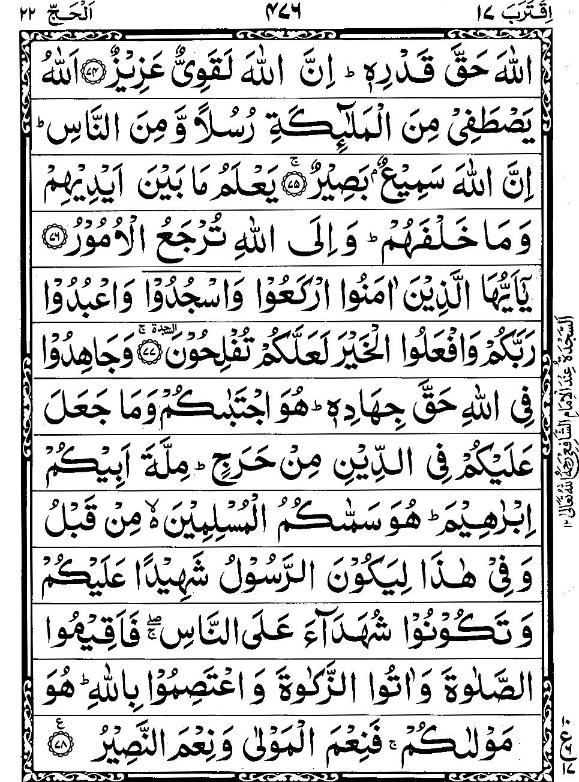 اِقْتَرَبَ ١٧ ٤٧٦ اَلْحَجّ ٢٢
اللّٰهَ حَقَّ قَدْرِهٖ ؕ اِنَّ اللّٰهَ لَقَوِىٌّ عَزِيْزٌ ﴿۷۴﴾ اَللّٰهُ
يَصْطَفِىْ مِنَ الْمَلٰٓئِكَةِ رُسُلًا وَّمِنَ النَّاسِ ؕ
اِنَّ اللّٰهَ سَمِيْعٌۢ بَصِيْرٌ ۚ ﴿۷۵﴾ يَعْلَمُ مَا بَيْنَ اَيْدِيْهِمْ
وَمَا خَلْفَهُمْ ؕ وَاِلَى اللّٰهِ تُرْجَعُ الْاُمُوْرُ ﴿۷۶﴾
يٰۤاَيُّهَا الَّذِيْنَ اٰمَنُوا ارْكَعُوْا وَاسْجُدُوْا وَاعْبُدُوْا
رَبَّكُمْ وَافْعَلُوا الْخَيْرَ لَعَلَّكُمْ تُفْلِحُوْنَ السجدة ۚ ﴿۷۷﴾ وَجَاهِدُوْا
فِى اللّٰهِ حَقَّ جِهَادِهٖ ؕ هُوَ اجْتَبٰىكُمْ وَمَا جَعَلَ
عَلَيْكُمْ فِى الدِّيْنِ مِنْ حَرَجٍ ؕ مِلَّةَ اَبِيْكُمْ
اِبْرٰهِيْمَ ؕ هُوَ سَمّٰىكُمُ الْمُسْلِمِيْنَ ۙ مِنْ قَبْلُ
وَفِىْ هٰذَا لِيَكُوْنَ الرَّسُوْلُ شَهِيْدًا عَلَيْكُمْ
وَتَكُوْنُوْا شُهَدَآءَ عَلَى النَّاسِ ۖۚ فَاَقِيْمُوا
الصَّلٰوةَ وَاٰتُوا الزَّكٰوةَ وَاعْتَصِمُوْا بِاللّٰهِ ؕ هُوَ
مَوْلٰىكُمْ ۚ فَنِعْمَ الْمَوْلٰى وَنِعْمَ النَّصِيْرُ ﴿۷۸﴾ ع
السجدة عند الامام الشافعي رحمه الله تعالى ١٢